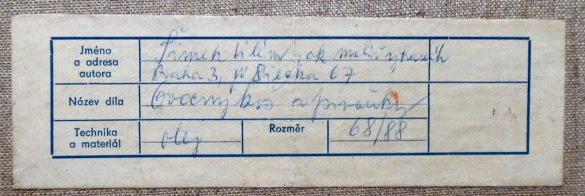 Jméno a adresa autora Šimek Vilém, ak. malíř
Praha 3, 67
Název díla Ovocný koš a
Technika a materiál olej Rozměr 68/88